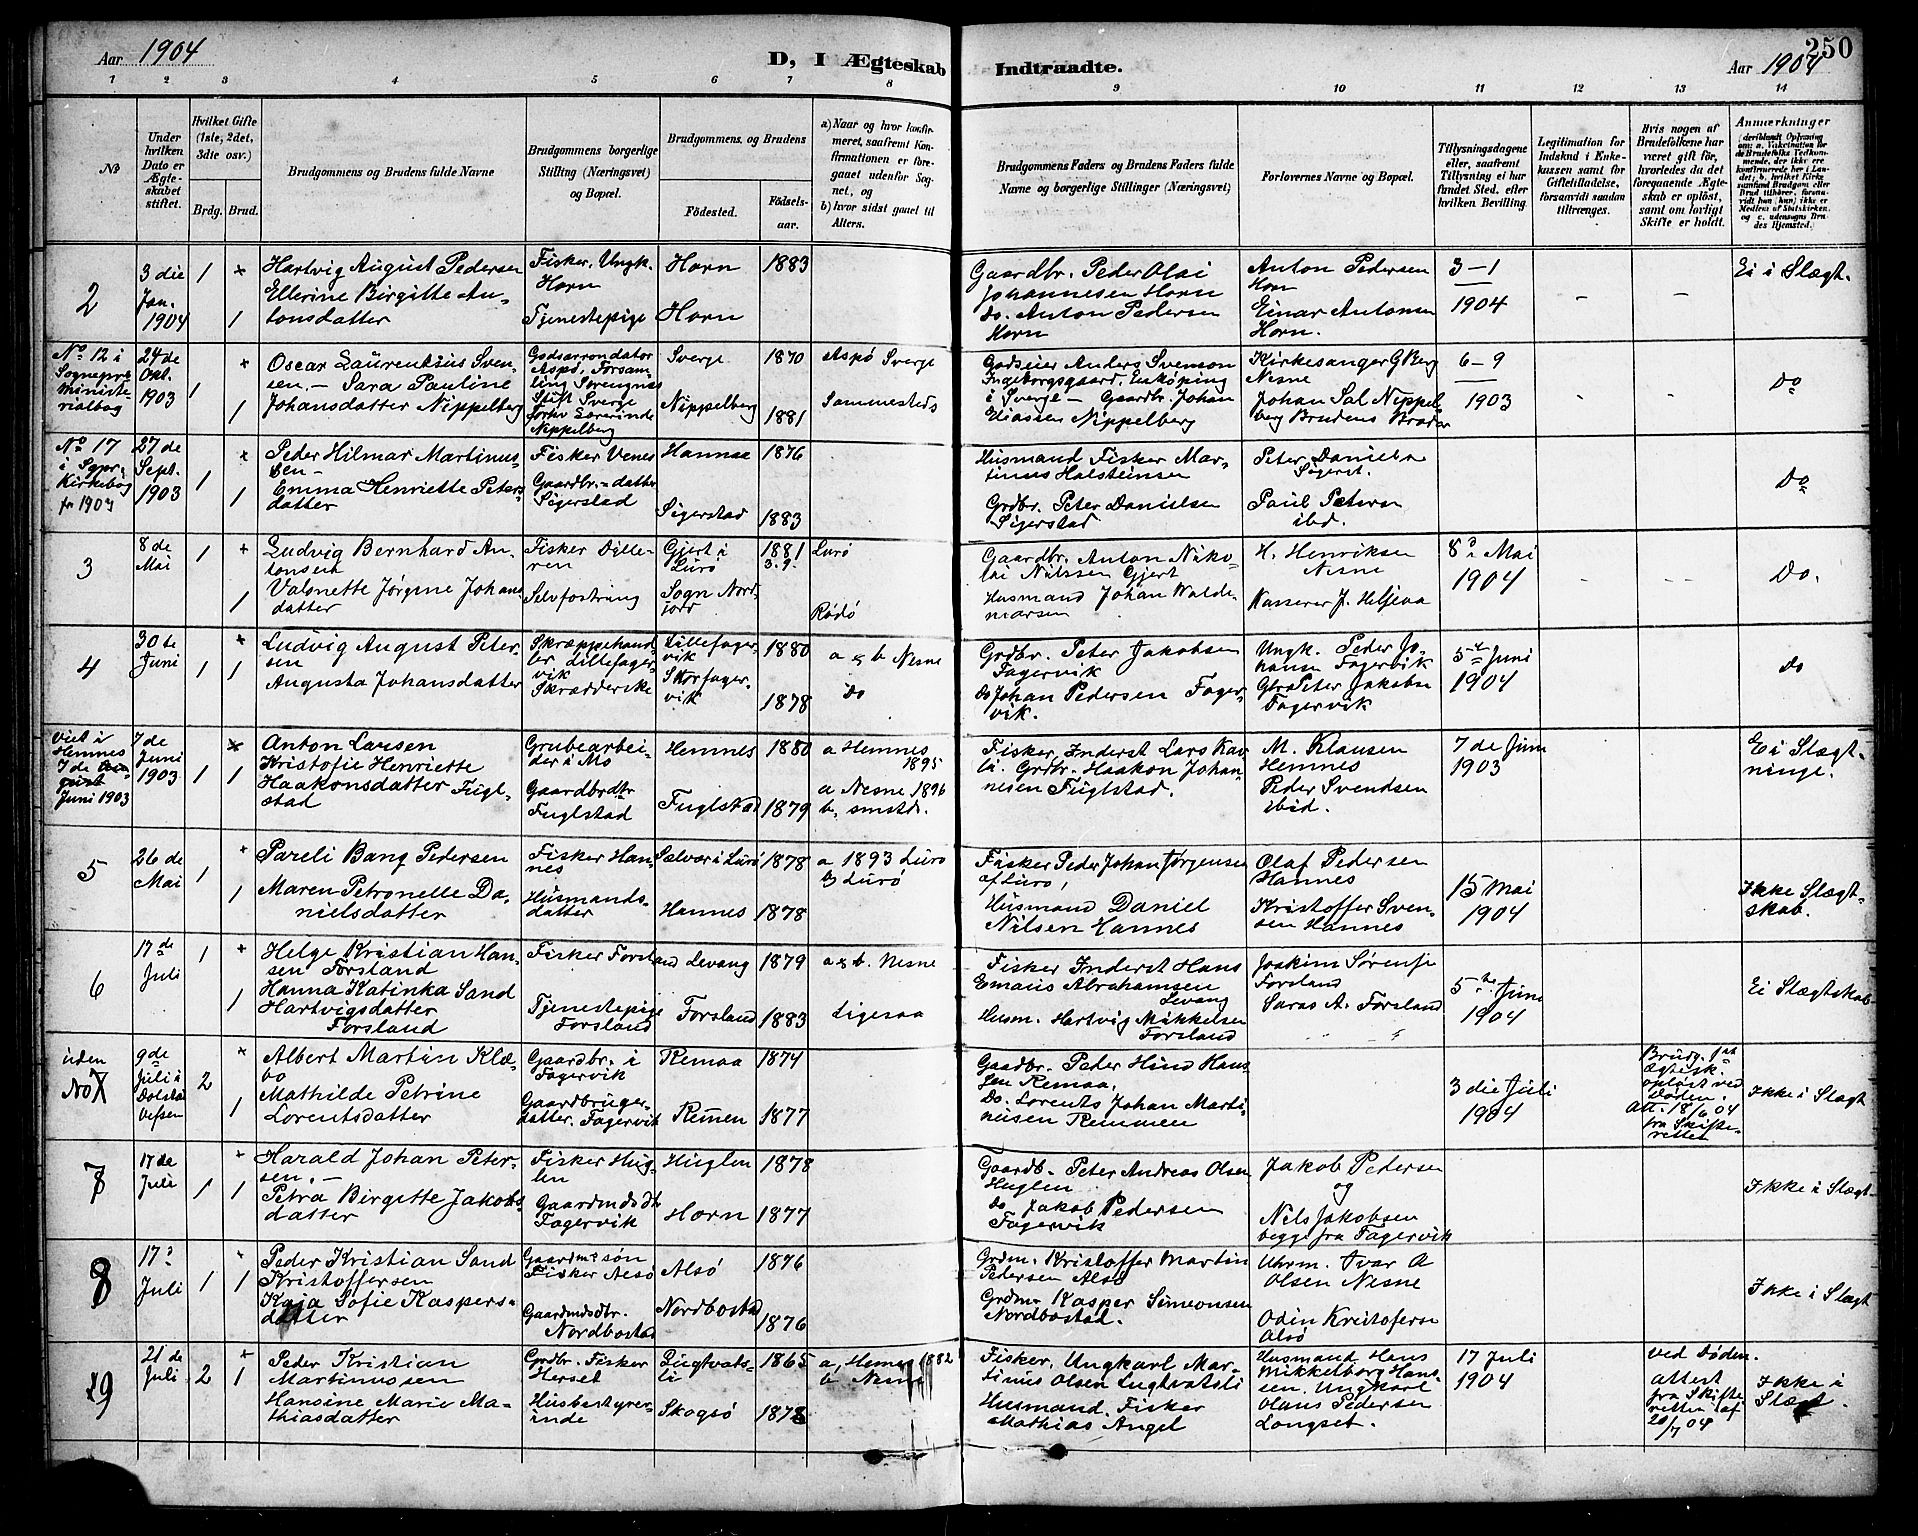 Aar 1904
D, I Ægteskab
Indtraadte.
Aar 1904
250
1 2 3 4 5 6 7 8 9 10 11 12 13 14
No
Under hvilken Dato er Ægteskabet stiftet.
Hvilket Gifte (1ste, 2det, 3die osv.)
Brdg.
Brud.
Brudgommens og Brudens fulde Navne
Brudgommens borgerlige Stilling (Næringsvei) og Bopæl.
Brudgommens. og Brudens
Födested.
Födselsaar.
a) Naar og hvor konfirmeret, saafremt Konfirmationen er foregaaet udenfor Sognet, og
b) hvor sidst gaaet til Alters.
Brudgommens Faders og Brudens Faders fulde Navne og borgerlige Stillinger (Næringsvei)
Forlovernes Navne og Bopæl.
Tillysningsdagene eller, saafremt Tillysning ei har fundet Sted, efter hvilken Bevilling.
Legitimation for Indskud i Enkekassen samt for Giftetilladelse, forsaavidt saadan tiltrænges.
Hvis nogen af Brudefolkene har været gift før, hvorledes du det foregaaende Ægteskab er oplöst, samt om lovligt Skifte er holdt.
Anmærkninger
2
3 die
Jan.
1904
1
1
Hartvig August Pedersen
Ellerine Birgitte An-
tonsdatter
Fisker, Ungk.
Horn
Tjenestepige
Horn
Horn
1883
Gaardbr. Peder Olai
Johannesen Horn
Do. Anton Pedersen
Horn
Anton Pedersen
Horn
Einar Antonsen
Horn.
3-1
1904
Ei i Slægt.
No. 12 i
Sognepræ
ministe-
rialbog
24 de
Okt.
1903
1
1
Oscar Laurentsius Sven-
sen. — Sara Pauline
Johansdatter Nippelberg
Godsarrondator
Aspö, Forsam-
ling Strengnes
Stift Sverge
Nippelberg
Sverge
Nippelberg
1870
1881
Aspö Sverge
Sammesteds
Godseier Anders Svenson
Ingeborgsgaard, Enköping
i Sverge — Gaardbr. Johan
Eliassen Nippelberg
Kirkesanger G Berg
Nesne
Johan Sal Nippel-
berg Brudens Broder
6-9
1903
Do
No 17
i Sgpr.
Kirkebog
for 1903
27 de
Sept.
1903
1
1
Peder Hilmar Martinus-
sen —
Emma Henriette Peters-
datter
Fisker Venes
Gaardbr. datter
Sigerstad
Hannæ
Sigerstad
1876
1883
Husmand Fisker Mar-
tinus Holsteinsen
Grdbr. Peter Danielsen
Sigerstad
Peter Daniels
Sigerst.
Paul Petersn
ibd.
Do
3
8 de
Mai
1
1
Ludvig Bernhard An-
tonsen
Valonette Jörgine Johans
datter
Fisker Dille-
ren
Selvfostring
Gjert i
Lurö
Sogn Nord-
jord
1881
3.9.
Lurö
Rödö
Gaardbr. Anton Niko-
lai Nilssen Gjert
Husmand Johan Walde-
marsen
H. Henriksen
Nesne
Kasserer J. Heljesa
8 Mai
1904
Do.
4
30 te
Juni
1
1
Ludvig August Peter-
sen
Augusta Johansdatter
Skræppehand-
ler Lillefager-
vik
Skrædderske
Lillefager-
vik
Skorfager-
vik
1880
1878
a & b Nesne
Do
Grdbr. Peter Jakobsen
Fagervik
Do Johan Pedersen Fager-
vik.
Ungk. Peder Jo-
hansn Fagervik
Peter Jakobse
Fagervik
5te Juni
1904
Do
Viet i
Hemnes
7 de
Juni 1903
7 de
Juni
1903
1
1
Anton Larsen
Kristofie Henriette
Haakonsdatter Fugl-
stad
Grubearbei-
der i Mo
Gaardbrdtr
Fuglstad
Hemnes
Fuglstad
1880
1879
a Hemnes
1895
a Nesne 1896
b, smstd.
Fisker Inderst Lars Kav-
li. Grdbr. Haakon Johan-
nesen Fuglstad.
M. Klausen
Hemnes
Peder Svendsen
ibid.
7 de Juni
1903
Ei i Slægt-
ninge.
5
26 de
Mai
1
1
Pareli Bang Pedersen
Maren Petronelle Da-
nielsdatter
Fisker Han-
nes
Husmands-
datter
Selvær i Lurö
Hannes
1878
1878
a 1893 Lurö
B Lurö
Fisker Peder Johan Jörgensen
af Lurö,
Husmand Daniel
Nilsen Hannes
Olaf Pedersen
Hannes
Kristoffer Sven-
sen Hannes
15 Mai
1904
Ikke Slægt-
skab.
6
17 de
Juli
1
1
Helge Kristian Han-
sen Forsland
Hanna Katinka Sand
Hartvigsdatter
Forsland
Fisker Forsland
Tjenestepige
Forsland
Levang
Forsland
1879
1883
a & b. Nesne
Ligesaa
Fisker Inderst Hans
Emaus Abrahamsen
Levang
Husm. Hartvig Mikkelsen
Forsland
Joakim Sörense
Forsland
Saras A. Forsland
5te Juni
1904
Ei Slægtskab
uden
No
9 de
Juli i
Dolstad
Vefsen
2
1
Albert Martin Klæ-
bo
Mathilde Petrine
Lorentsdatter
Gaardbr. i
Fagervik
Gaardbruger-
datter. Fagervik
Remaa
Remen
1874
1877
Gaardbr. Peder Hind Hans
sen Remaa.
Do. Lorents Johan Marti-
nusen Remmen
3 die Juli
1904
Brudg. fat
ægtesk.
opløst ved
Döden.
Att. 18/6 04
fra Skifte-
retten
Ikke i Slægt
7
17 de
Juli
1
1
Harald Johan Peter-
sen. —
Petra Birgitte Jakobs-
datter
Fisker Hug-
len
Gaardmdsdtr
Fagervik
Huglen
Horn
1878
1877
Gaardb. Peter Andreas Olsen
Huglen
Do. Jakob Pedersen
Fagervik
Jakob Pedersen
og
Nils Jakobsen
begge fra Fagervik
Ikke i Slægt
8
17
Juli
1
1
Peder Kristian Sand
Kristoffersen
Kaja Sofie Kaspers-
datter
Gaardm. sön
Fisker Alsö
Gaardmdsdtr.
Nordbostad
Alsö
Nordbostad
1876
1876
Grdm. Kristoffer Martin
Pedersen Alsö
Grdm. Kasper Simeonsen
Nordbostad.
Uhrm. Ivar A
Olsen Nesne
Odin Kristofersn
Alsö
Ikke i Slægt
9
21 de
Juli
2
1
Peder Kristian
Martinussen
Hansine Marie Ma-
thiasdatter
Grdbr. Fisker
Herset
Husbestyrer-
inde
Lugtvats-
li
Skogsö
1865
1878
a, Hemnes 1882
b Nesne
Fisker, Ungkarl Mar-
tinus Olsen Lugtvatsli
Husmand. Fisker
Mathias Angel
Husmand Hans
Mikkelborg Hans-
sen. Ungkarl
Hans Pedersen
Longset.
17 Juli
1904
ved Døden.
attest
fra Skifte
retten af
20/7 04
Ikke i
Slægt.